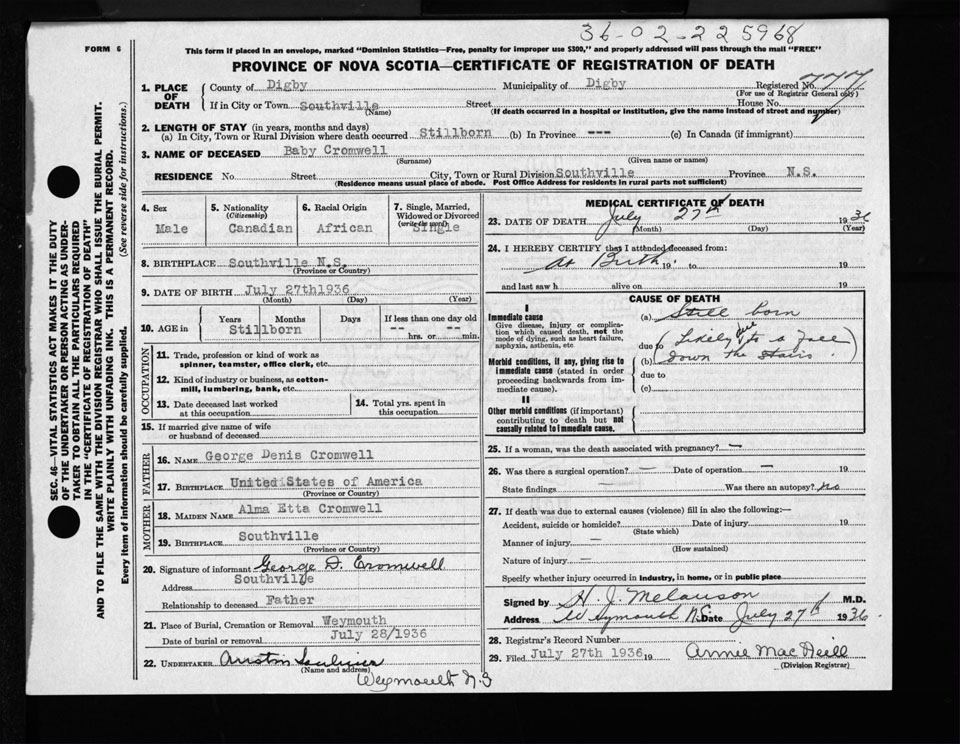 36-02-225968
FORM 6
This form if placed in an envelope, marked "Dominion Statistics—Free, penalty for improper use $300," and properly addressed will pass through the mail "FREE"
PROVINCE OF NOVA SCOTIA—CERTIFICATE OF REGISTRATION OF DEATH
SEC. 46—VITAL STATISTICS ACT MAKES IT THE DUTY
OF THE UNDERTAKER OR PERSON ACTING AS UNDER-
TAKER TO OBTAIN ALL THE PARTICULARS REQUIRED
IN THE "CERTIFICATE OF REGISTRATION OF DEATH"
AND TO FILE THE SAME WITH THE DIVISION REGISTRAR WHO SHALL ISSUE THE BURIAL PERMIT.
WRITE PLAINLY WITH UNFADING INK. THIS IS A PERMANENT RECORD.
Every item of information should be carefully supplied. (See reverse side for instructions.)
1. PLACE OF DEATH
County of Digby Municipality of Digby Registered No. 777
(For use of Registrar General only)
If in City or Town Southville Street House No.
(Name) (If death occurred in a hospital or institution, give the name instead of street and number)
2. LENGTH OF STAY (in years, months and days)
(a) In City, Town or Rural Division where death occurred Stillborn (b) In Province --- (c) In Canada (if immigrant)
3. NAME OF DECEASED Baby Cromwell
(Surname) (Given name or names)
RESIDENCE No. Street City, Town or Rural Division Southville Province N.S.
(Residence means usual place of abode. Post Office Address for residents in rural parts not sufficient)
4. Sex
Male
5. Nationality
(Citizenship)
Canadian
6. Racial Origin
African
7. Single, Married,
Widowed or Divorced
(write the word)
Single
8. BIRTHPLACE Southville N.S.
(Province or Country)
9. DATE OF BIRTH July 27th1936
(Month) (Day) (Year)
10. AGE in
Years Months Days If less than one day old
Stillborn -- hrs. or -- min.
OCCUPATION
11. Trade, profession or kind of work as
spinner, teamster, office clerk, etc.
12. Kind of industry or business, as cotton-
mill, lumbering, bank, etc.
13. Date deceased last worked
at this occupation
14. Total yrs. spent in
this occupation
15. If married give name of wife
or husband of deceased
FATHER
16. NAME George Denis Cromwell
17. BIRTHPLACE United States of America
(Province or Country)
MOTHER
18. MAIDEN NAME Alma Etta Cromwell
19. BIRTHPLACE Southville
(Province or Country)
20. Signature of informant George D. Cromwell
Address Southville
Relationship to deceased Father
21. Place of Burial, Cremation or Removal Weymouth
Date of burial or removal July 28/1936
22. UNDERTAKER Austin Saulnier
(Name and address)
Weymouth N.S
MEDICAL CERTIFICATE OF DEATH
23. DATE OF DEATH July 27th 1936
(Month) (Day) (Year)
24. I HEREBY CERTIFY that I attended deceased from:
At Birth. 19 to 19
and last saw h alive on 19
CAUSE OF DEATH
I
Immediate cause
Give disease, injury or complica-
tion which caused death, not the
mode of dying, such as heart failure,
asphyxia, asthenia, etc
(a) Still born
due to
Morbid conditions, if any, giving rise to
immediate cause (stated in order
proceeding backwards from im-
mediate cause).
(b) (Likely due to a fall
down the stairs.)
due to
(c)
II
Other morbid conditions (if important)
contributing to death but not
causally related to immediate cause.
25. If a woman, was the death associated with pregnancy? —
26. Was there a surgical operation? — Date of operation — 19
State findings — Was there an autopsy? no
27. If death was due to external causes (violence) fill in also the following:—
Accident, suicide or homicide? Date of injury 19
(State which)
Manner of injury —
(How sustained)
Nature of injury —
Specify whether injury occurred in industry, in home, or in public place
Signed by H. J. Melanson M.D.
Address Weymouth N.S. Date July 27th 1936
28. Registrar's Record Number
29. Filed July 27th 1936 19 Annie MacNeill
(Division Registrar)